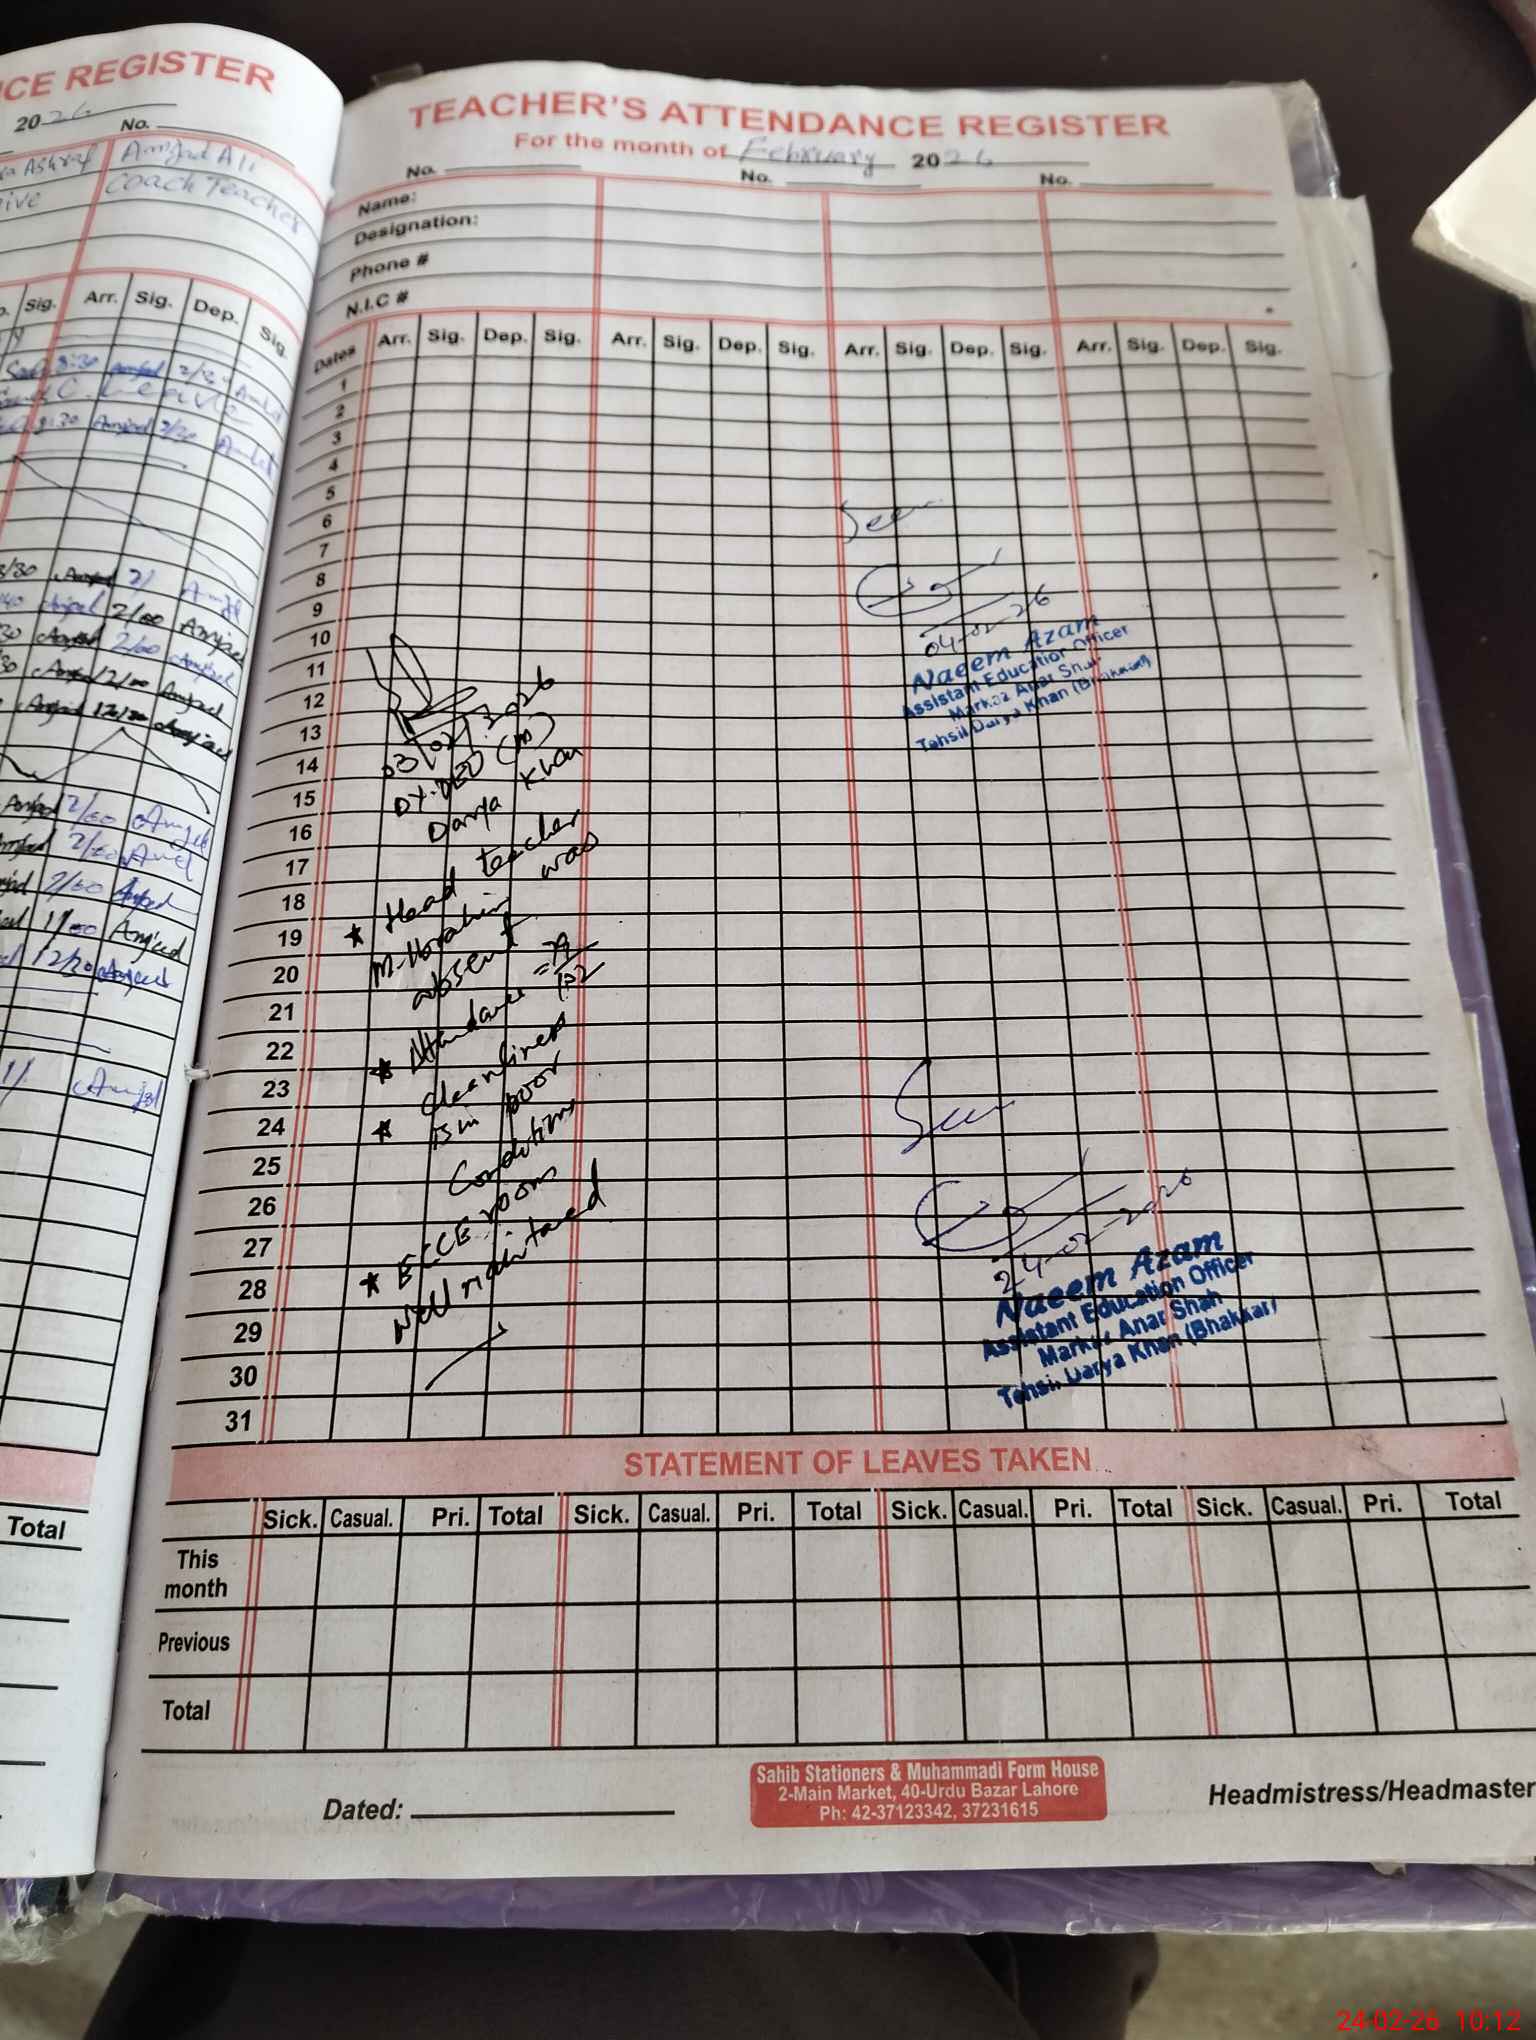 CE REGISTER
2026
No.
a Ashraf Amjad Ali
Coach Teacher
Sig. Arr. Sig. Dep. Sig.
8:30 Amjad
C. Leave
Amjad
Amjad
2/00 Amjad
2/00
12/00 Amjad
Amjad
Amjad
2/00
2/00 Amjad
1/00 Amjad
12/30 Amjad
Total
TEACHER'S ATTENDANCE REGISTER
For the month of February 2026
No. No. No.
Name:
Designation:
Phone #
N.I.C #
Dates Arr. Sig. Dep. Sig. Arr. Sig. Dep. Sig. Arr. Sig. Dep. Sig. Arr. Sig. Dep. Sig.
1
2
3
4
5
6
7
8
9
10
11
12
13
14
15
16
17
18
19
20
21
22
23
24
25
26
27
28
29
30
31
03/02/2026
DY.DEO (M)
Darya Khan
* Head teacher
M. Ibrahim was
absent
* Attendance =
132
* Cleanliness
is in poor
Condition
* ECCE room
Well maintained
Seen
04-02-26
Naeem Azam
Assistant Education Officer
Markaz Anar Shah
Tehsil Darya Khan (Bhakkar)
Seen
24-02-2026
Naeem Azam
Assistant Education Officer
Markaz Anar Shah
Tehsil Darya Khan (Bhakkar)
STATEMENT OF LEAVES TAKEN
Sick. Casual. Pri. Total Sick. Casual. Pri. Total Sick. Casual. Pri. Total Sick. Casual. Pri. Total
This
month
Previous
Total
Dated:
Sahib Stationers & Muhammadi Form House
2-Main Market, 40-Urdu Bazar Lahore
Ph: 42-37123342, 37231615
Headmistress/Headmaster
24-02-26 10:12